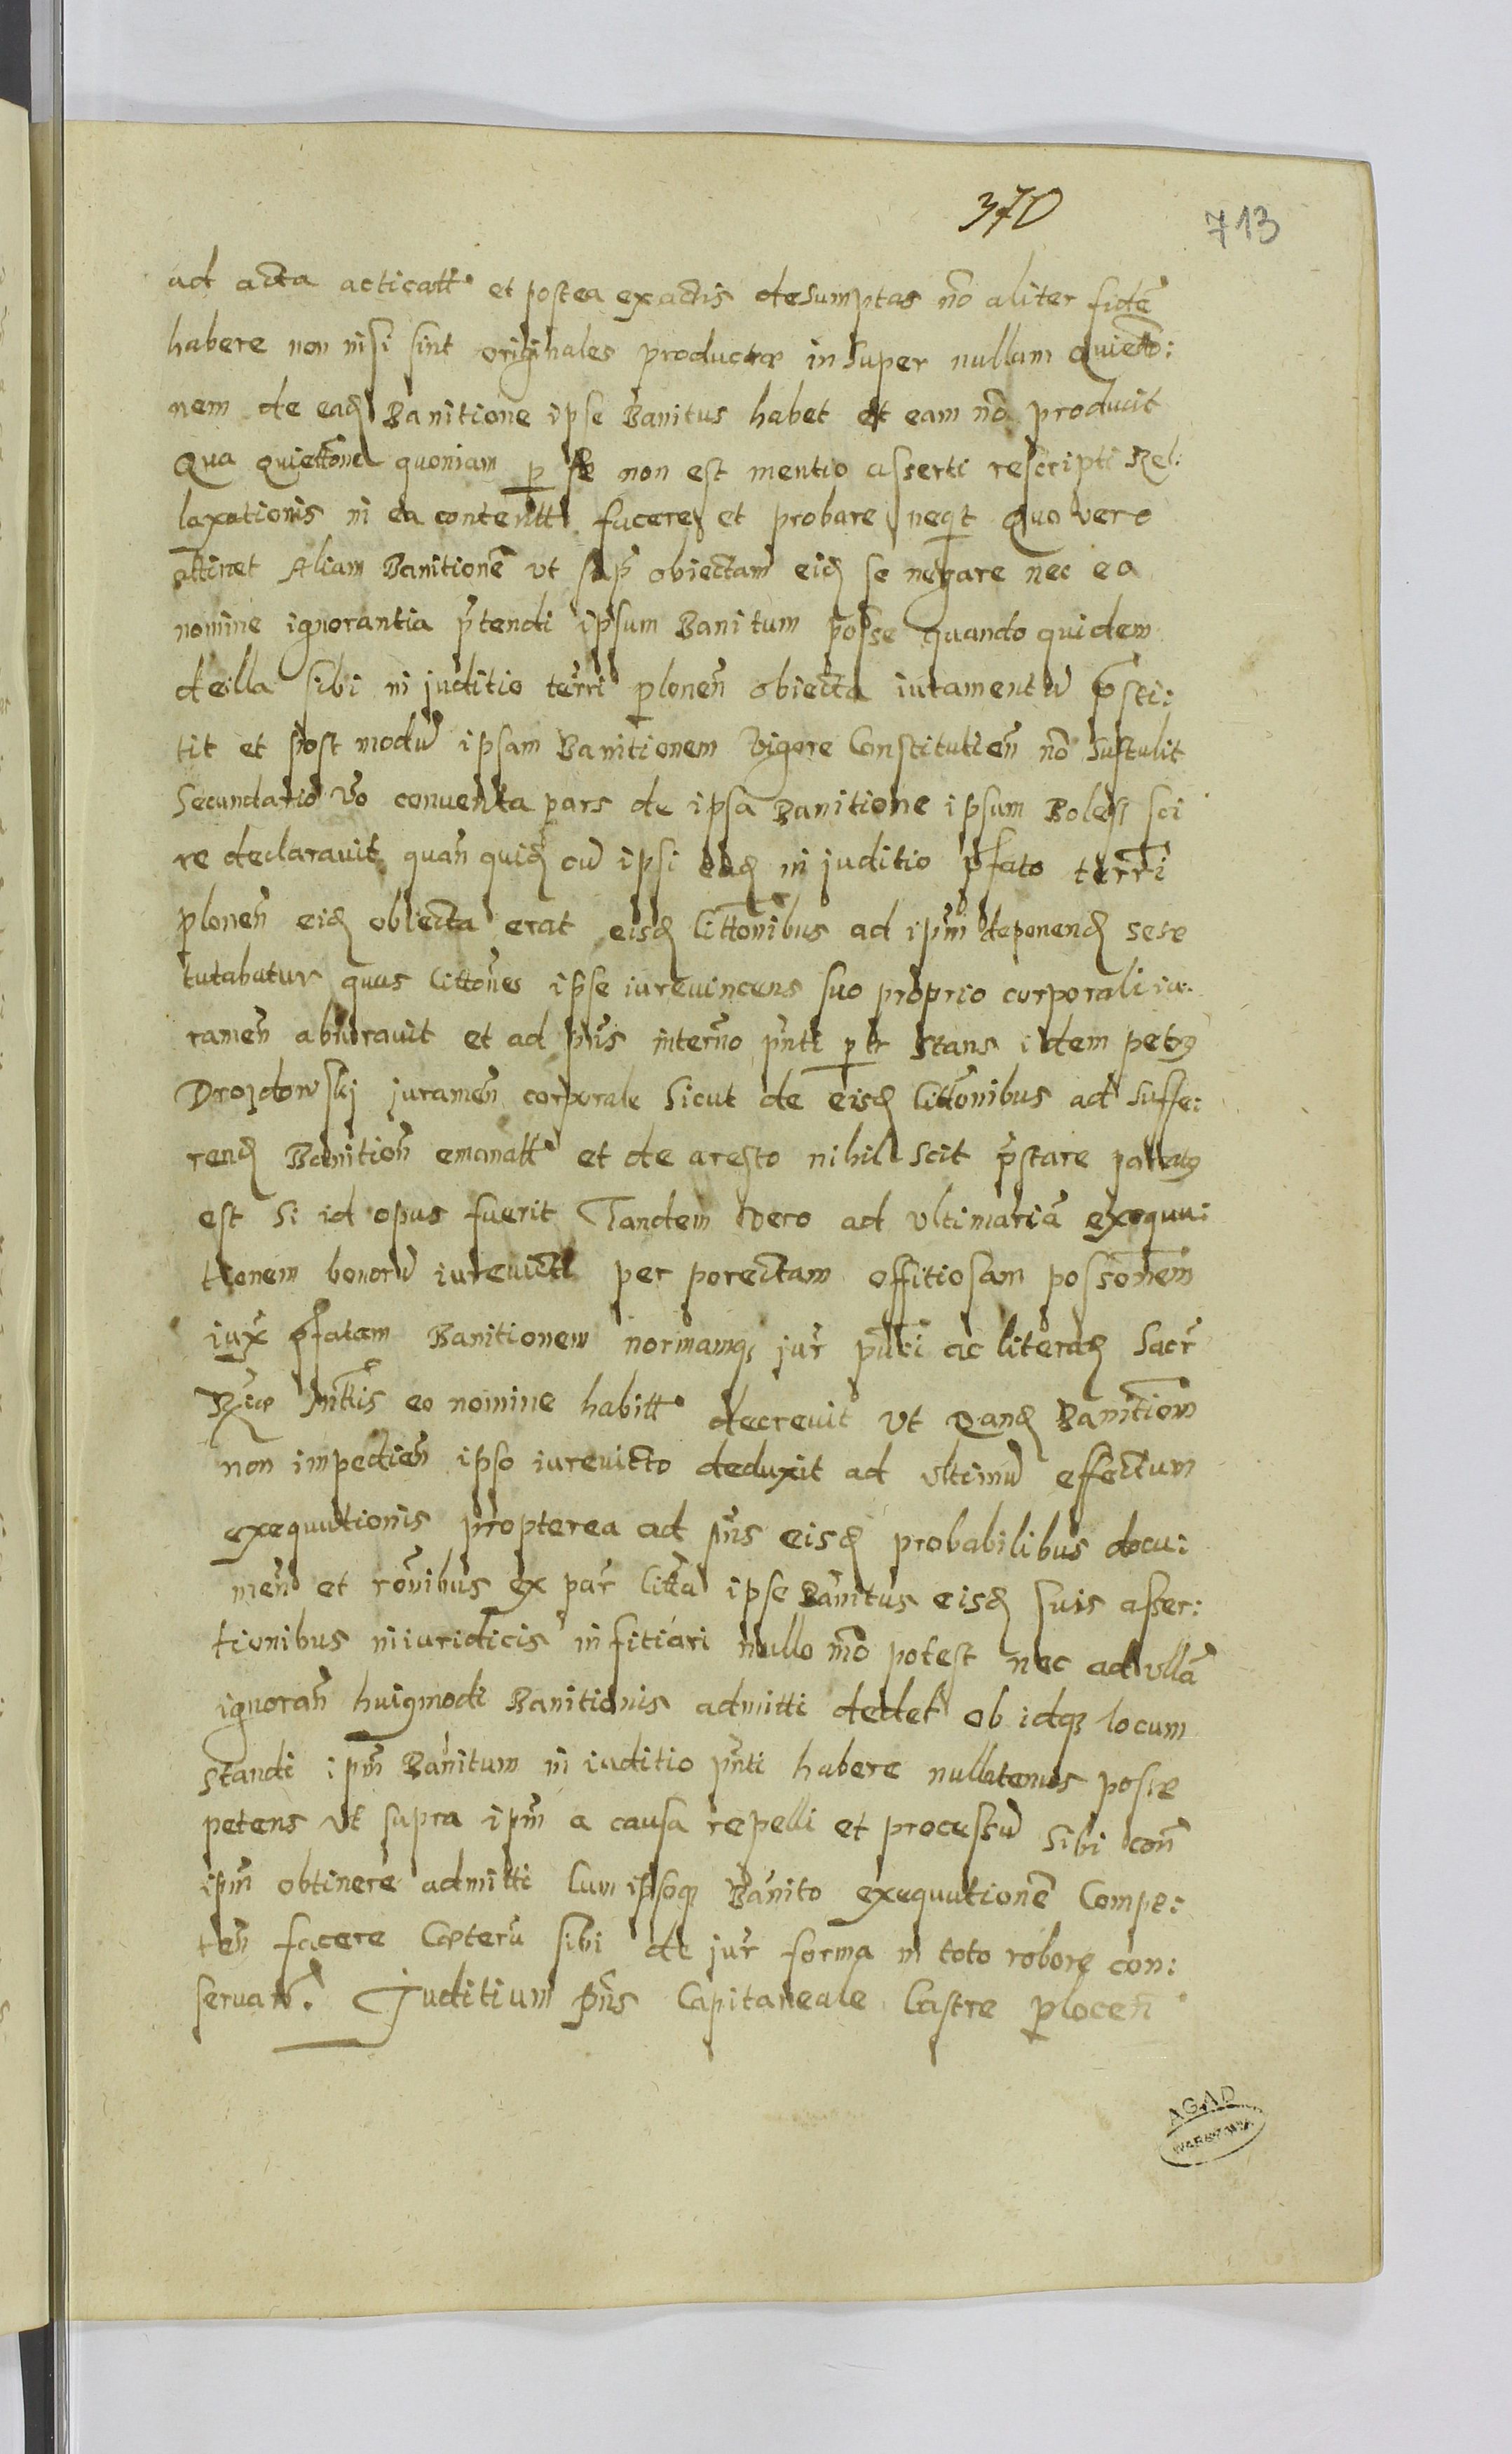 370
713
ad acta acticatt et postea exactis desumptas nō aliter fidē
habere non nisi sint originales productæ in super nullam quietto:
nem de eadꝫ Banitione ipse Banitus habet et eam nō producit
Qua quiettōne quoniam ꝑ se non est mentio asserti rescripti Rel:
laxationis in ea contentt facere et probare neqt Quo vero
attinet Aliam Banitionē ut sup obiectam eidꝫ se negare nec eo
nomine ignorantia p̄tendi ipsum Banitum posse quando quidem
de illa sibi in juditio terrī plonen̄ obiecta iuramentū p̄sti:
tit et post modū ipsam Banitionem Vigore Constitutien̄ nō sustulit
Secundario v̄o conventa pars de ipsa Banitione ipsum Bolesi sci
re declaravit quan quidꝫ cū ipsi eadꝫ in juditio p̄fato terrī
plonen̄ eidꝫ obiecta erat eisdꝫ littōnibus ad ipm̄ deponendꝫ sese
tutabatur quas littōnes ipse iurevincens suo proprio corporali iu:
ramen̄ abiuravit et ad p̄ns intervo p̄nti ꝑtr stans idem petrꝰ
Drozdowskj juramen̄ corporale Sicut de eisdꝫ littōnibus ad suffe:
rendꝫ Banition̄ emanatt et de aresto nihil scit p̄stare paratꝰ
est Si id opus fuerit Tandem Vero ad ultimariā exequu:
tionem bonorū iurevicti per porectam offitiosam possōnem
iux p̄fatam Banitionem normamqꝫ jur p̄uti ac literadꝫ Sacr̄
Rgiæ Mttis eo nomine habitt decrevit ut Qandꝫ Banition
non impedien̄ ipso iurevicto deduxit ad ultimū effectum
exequutionis propterea ad p̄ns eisdꝫ probabilibus docu:
men̄ et rōnibus ex par̄ littā ipse Banitus eisdꝫ suis asser:
tionibus iniuridicis infitiari nullo mō potest nec ad ullā
ignoran̄ huiꝰmodi Banitionis admitti debet ob idqꝫ locum
standi ipm̄ Banitum in iuditio p̄nti habere nullatenus posse
petens ut supra ipm̄ a causa repelli et processū sibi con̄
ipm̄ obtinere admitti Cum ipsoqꝫ Banito exequutionē Compe:
ten̄ facere Cæterū sibi de jur̄ forma in toto robore con:
servatō. Juditium p̄ns Capitaneale Castre plocen̄
AGAD
WARSZAWA